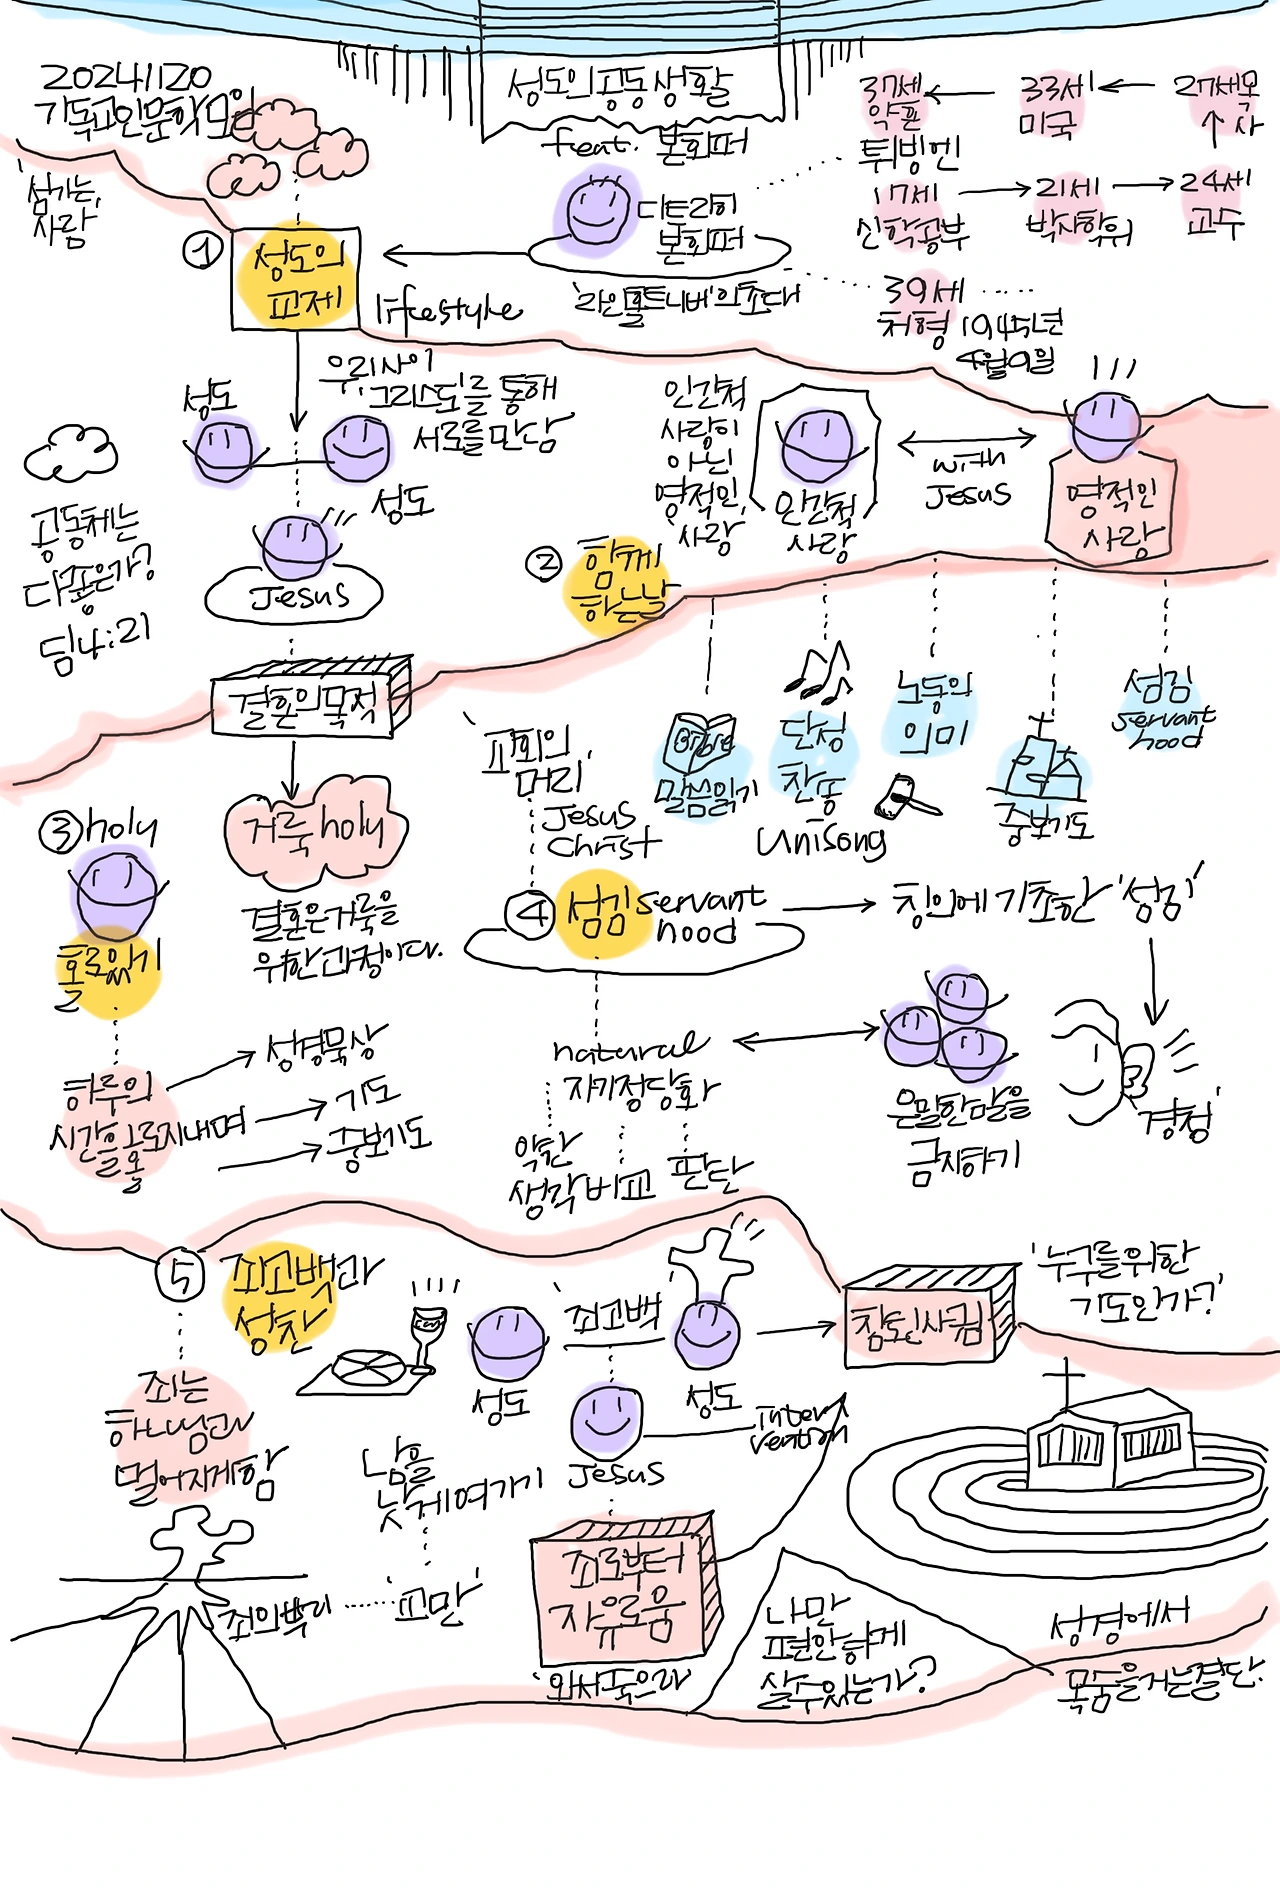 20241120
기독교인문학모임
성도의공동생활
feat. 본회퍼
디트리히
본회퍼
'라인홀트니버'의초대
37세
약혼
33세
미국
27세목
사
튀빙엔
17세
신학공부
21세
박사학위
24세
교수
39세
처형 1945년
4월9일
'섬기는,
사람
① 성도의
교제
lifestyle
우리사이
그리스도를 통해
서로를만남
성도
성도
Jesus
공동체는
다좋은가?
딤4:21
인간적
사랑이
아닌
영적인,
'사랑'
인간적
사랑
with
Jesus
영적인
사랑
② 함께
하는날
결혼의목적
거룩holy
결혼은거룩을
위한과정이다.
'교회의
머리'
Jesus
Christ
BIBLE
말씀읽기
단성
찬송
Unisong
노동의
의미
중보기도
섬김
servant
hood
③holy
홀로있기
하루의
시간을
홀로지내며
성경묵상
기도
중보기도
④ 섬김 servant
hood
창의에기초한 '섬김'
natural
자기정당화
악한
생각 비교 판단
은밀한말을
금지하기
'경청'
⑤ 죄고백과
성찬
죄는
하나님과
멀어지게함
'죄고백
성도
성도
Jesus
Intervention
참된사귐
'누구를위한
기도인가?'
남을
낮게여기기
죄의뿌리
'교만'
죄로부터
자유로움
'와서죽으라
나만
편안하게
살수있는가?
성경에서
목숨을거는결단.